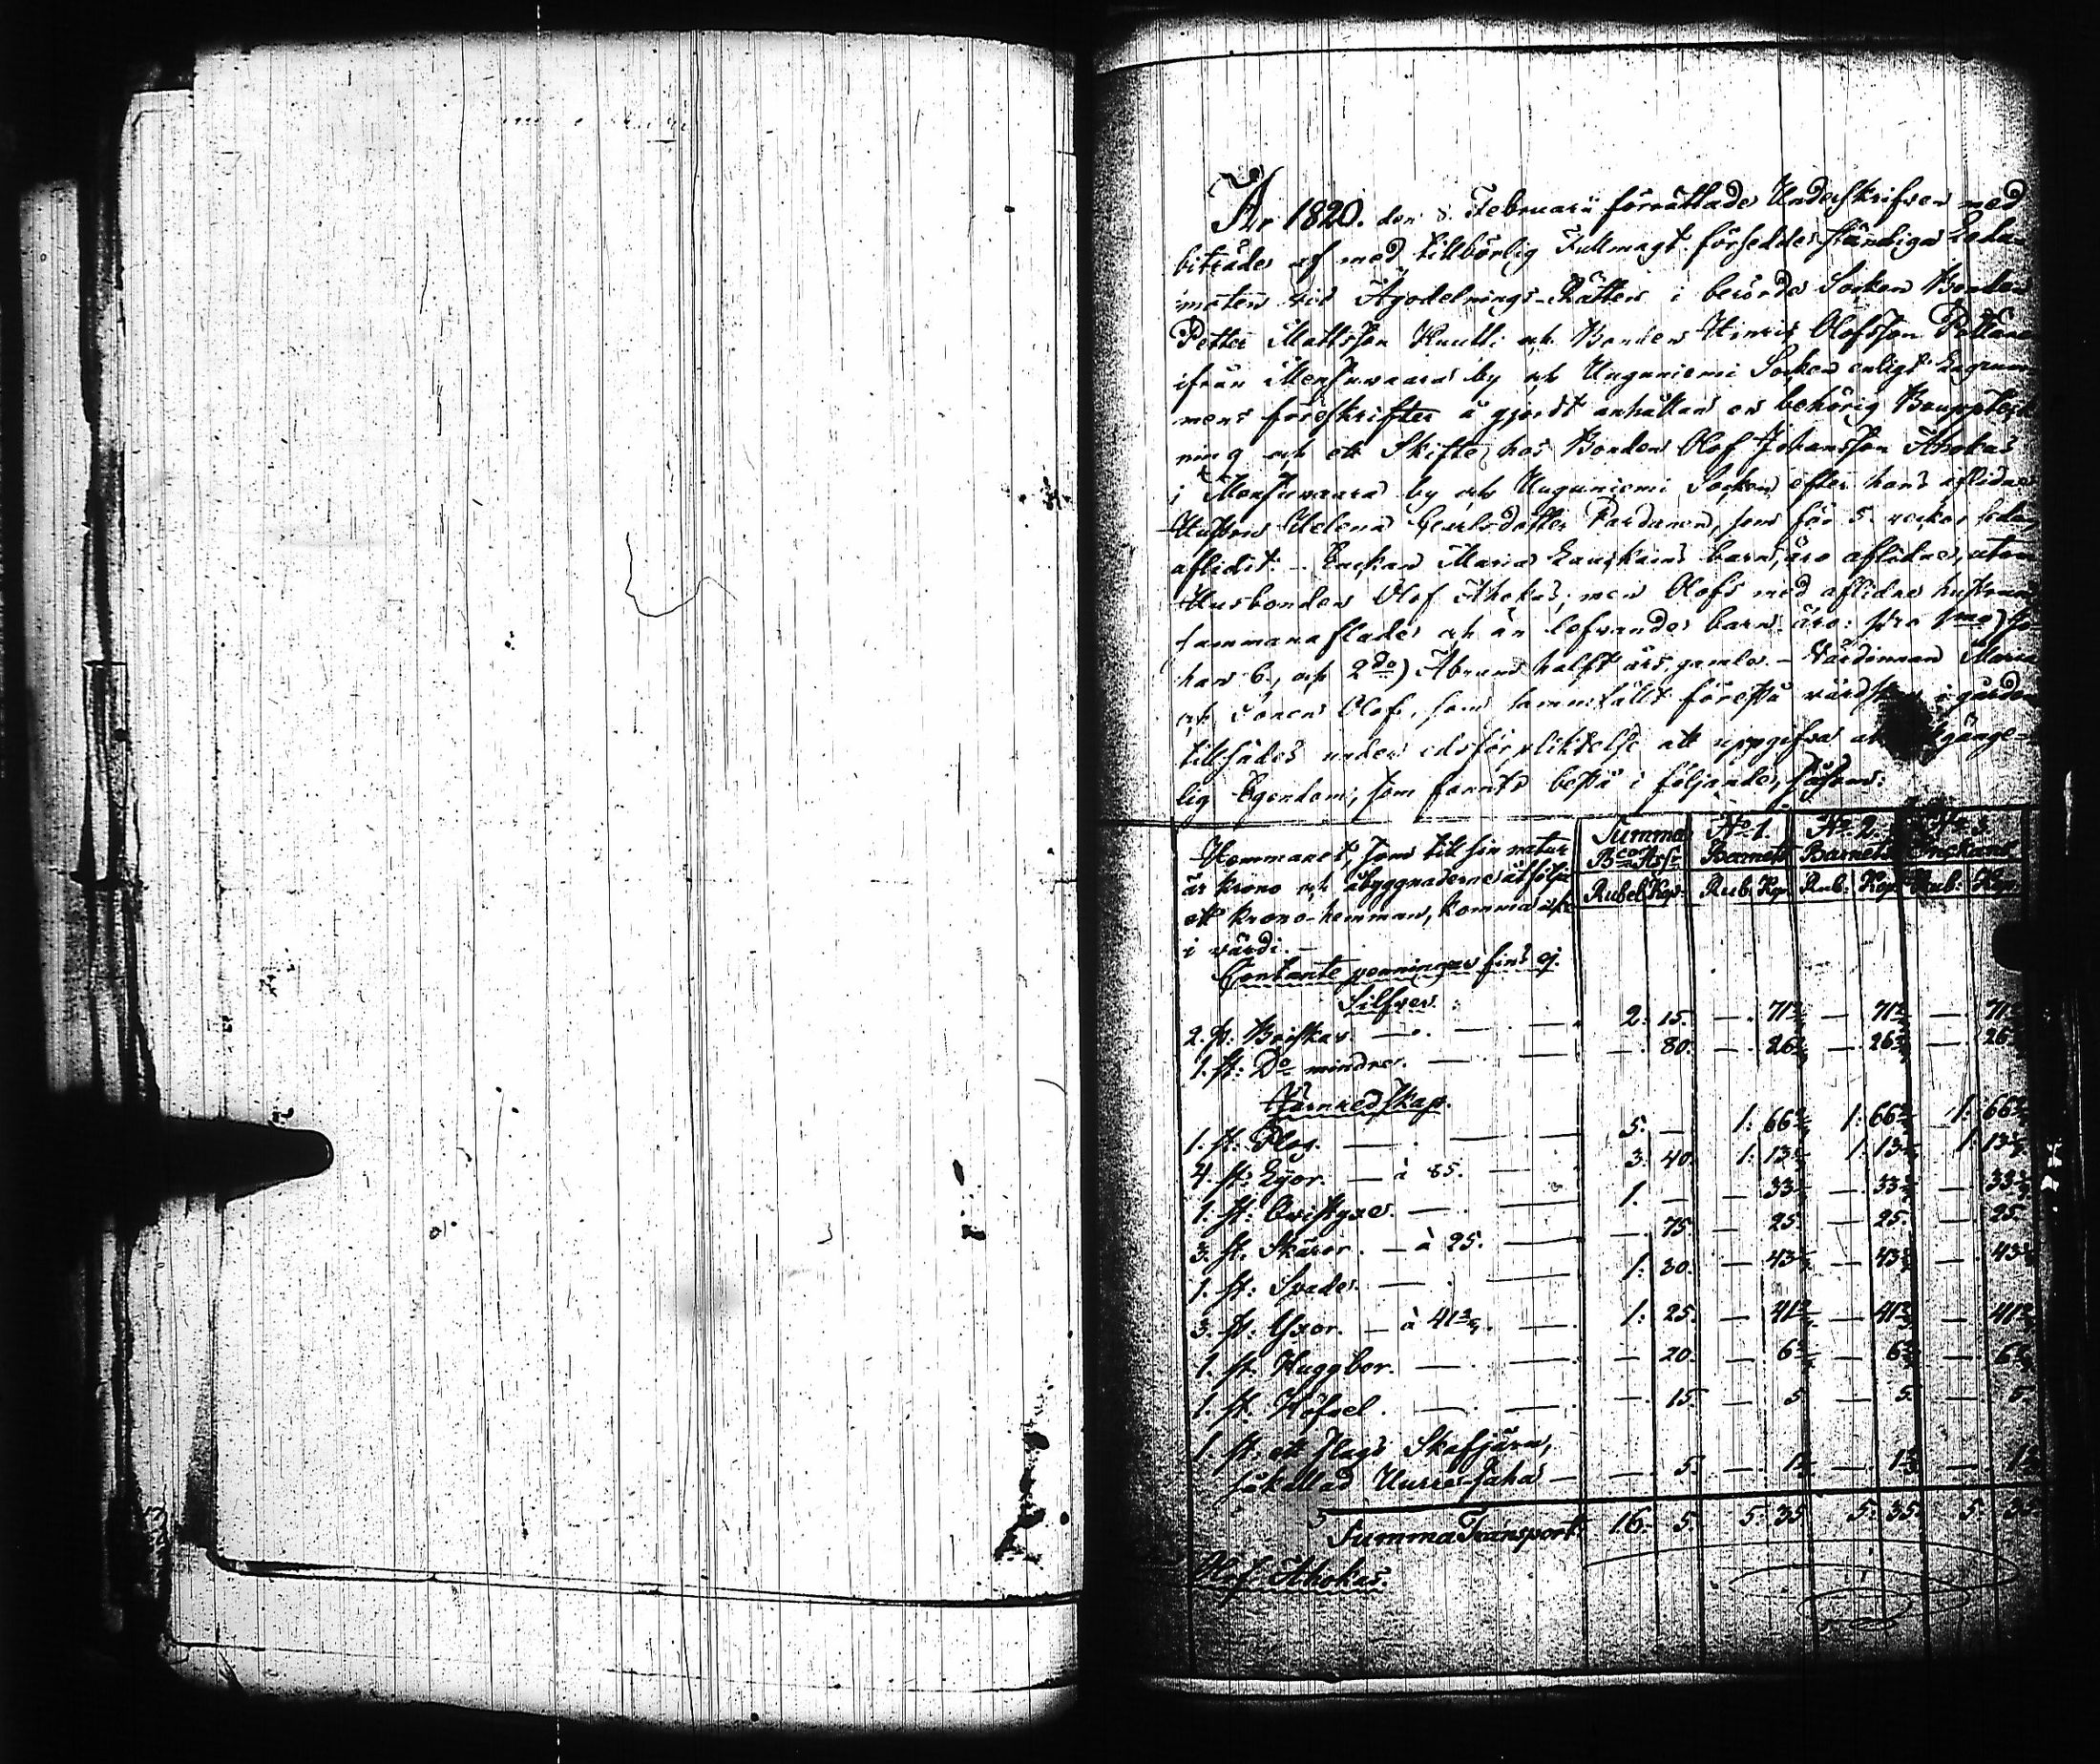 År 1820. den 8. Februarii förrättade Underskrifven med
biträde af med tillbörlig Fullmagt försedde ständiga Leda-
möten vid Ägodelnings-Rätten i berörde Socken Bonden
Petter Mattsson Knutti och Bonden Hinric Olofsson
ifrån Mensuvaara by och Unguniemi Socken enligt
mens föreskrifter å gjordt anhållan en behörig Bouppteck
ning och ett Skifte hos Bonden Olof Johansson Ahokas
i Mensuvaara by och Unguniemi Socken efter hans aflidne
Hustru Helena Carlsdotter Pardanen, som för 5 veckor sedan
aflidit. - Enckan Maria barn äro aflidne, utom
Husbonden Olof Ahokas; men Olofs med aflidne hustrun
sammanaflade och än lefvande barn äro: pro 1mo) Jo
han 6, och 2do) Abram halft års gamla. - Värdinnan Maria
och Sonen Olof, som samnfällt förestå värdskap i gården
tillsades under edsförpliktelse att uppgifva all gänge-
lig Egendom, som fanns bestå i följande, såsom:
Hemmanet, som till sin natur
är krono och åbyggnaderne åtfölja
ett krono-hemman, komma icke
i värdi. -
Summa No 1. No 2. No 3.
Bco Assr Barnets Barnets Enckans
Rubel Kop: Rub. Kop. Rub: Kop. Rub: Kop.
Contante penningar fins ej.
Silfver.
2. st: Briskar — 2. 15. — 71 2/3 — 71 2/3 — 71 2/3
1. st: Do mindre. — — 80. — 26 2/3 — 26 2/3 — 26 2/3
Järnredskap.
1. st: Plog. — 5. — 1: 66 2/3 1: 66 2/3 1: 66 2/3
4. st: Lÿor. — à 85. — 3. 40. 1: 13 1/3 1: 13 1/3 1: 13 1/3
1. st: Qvistyxe. — 1. — — 33 1/3 — 33 1/3 — 33 1/3
3. st. Skäror. — à 25. — 75. — 25. — 25. — 25.
1. st: Spade. — 1: 30. — 43 1/3 — 43 1/3 — 43 1/3
3. st: Yxor. — à 41 2/3. — 1: 25. — 41 2/3 — 41 2/3 — 41 2/3
1. st. Huggbor. — — 20. — 6 2/3 — 6 2/3 — 6 2/3
1. st. Höfvel. — — 15. — 5 — 5. — 5.
1. st: ett slags Skafjärn,
såkallad Uurre-saha — — 5. — 1 2/3 — 1 2/3 — 1 2/3
Summa Transport: 16. 5. 5. 35 5. 35. 5. 35
Olof Ahokas.